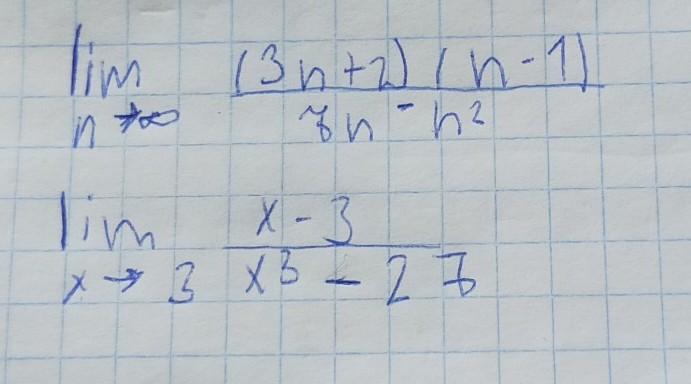 lim (3n+2)(n-1)
n→∞ 7n-n²
lim x-3
x→3 x³-27